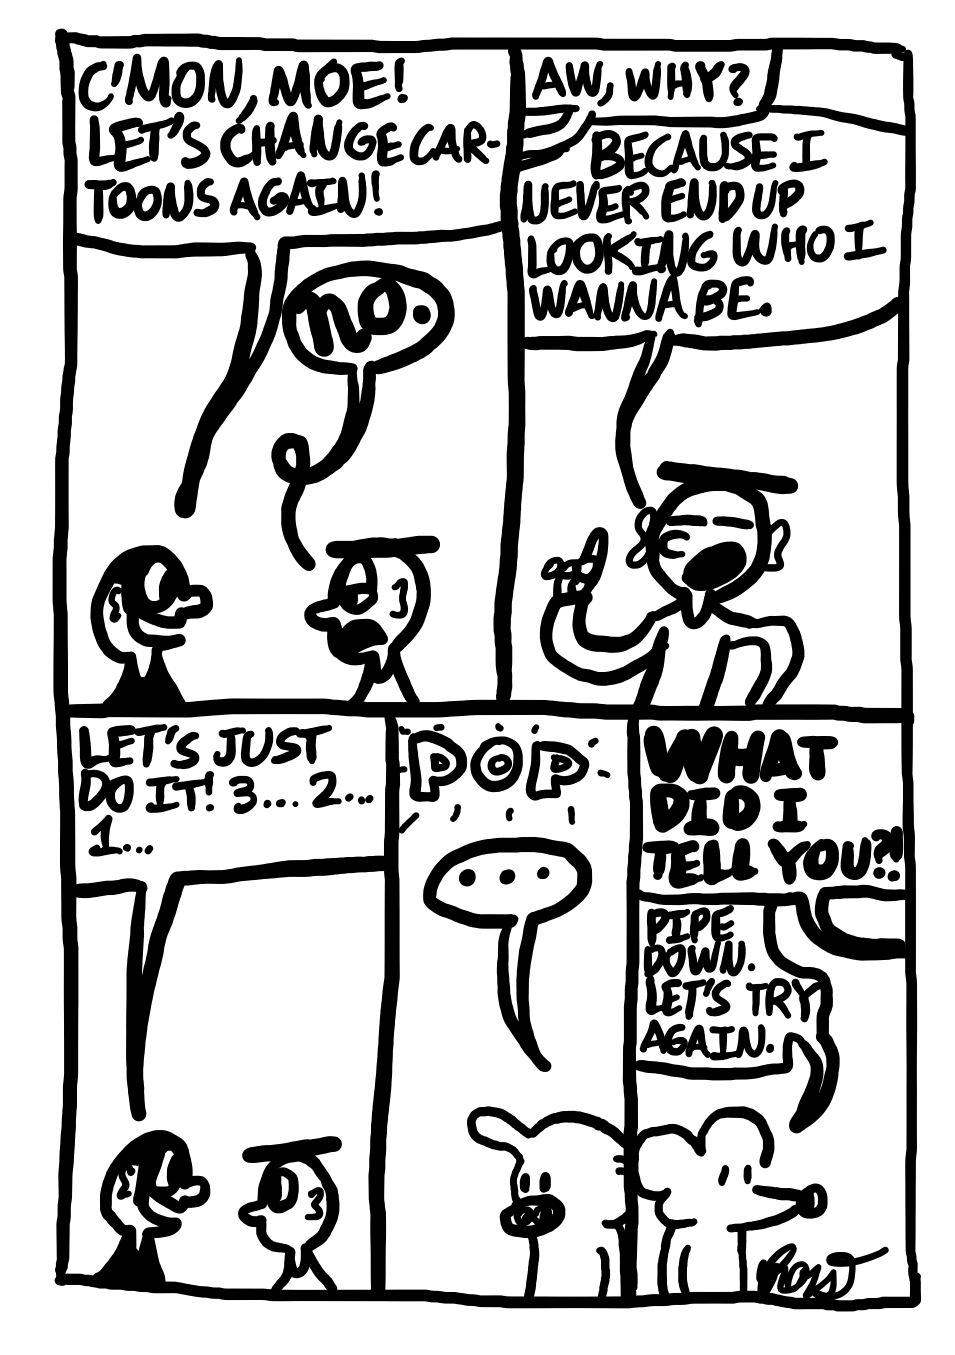 C'MON, MOE!
LET'S CHANGE CAR-
TOONS AGAIN!
NO.
AW, WHY?
BECAUSE I
NEVER END UP
LOOKING WHO I
WANNA BE.
LET'S JUST
DO IT! 3... 2...
1...
POP
...
WHAT
DID I
TELL YOU?!
PIPE
DOWN.
LET'S TRY
AGAIN.